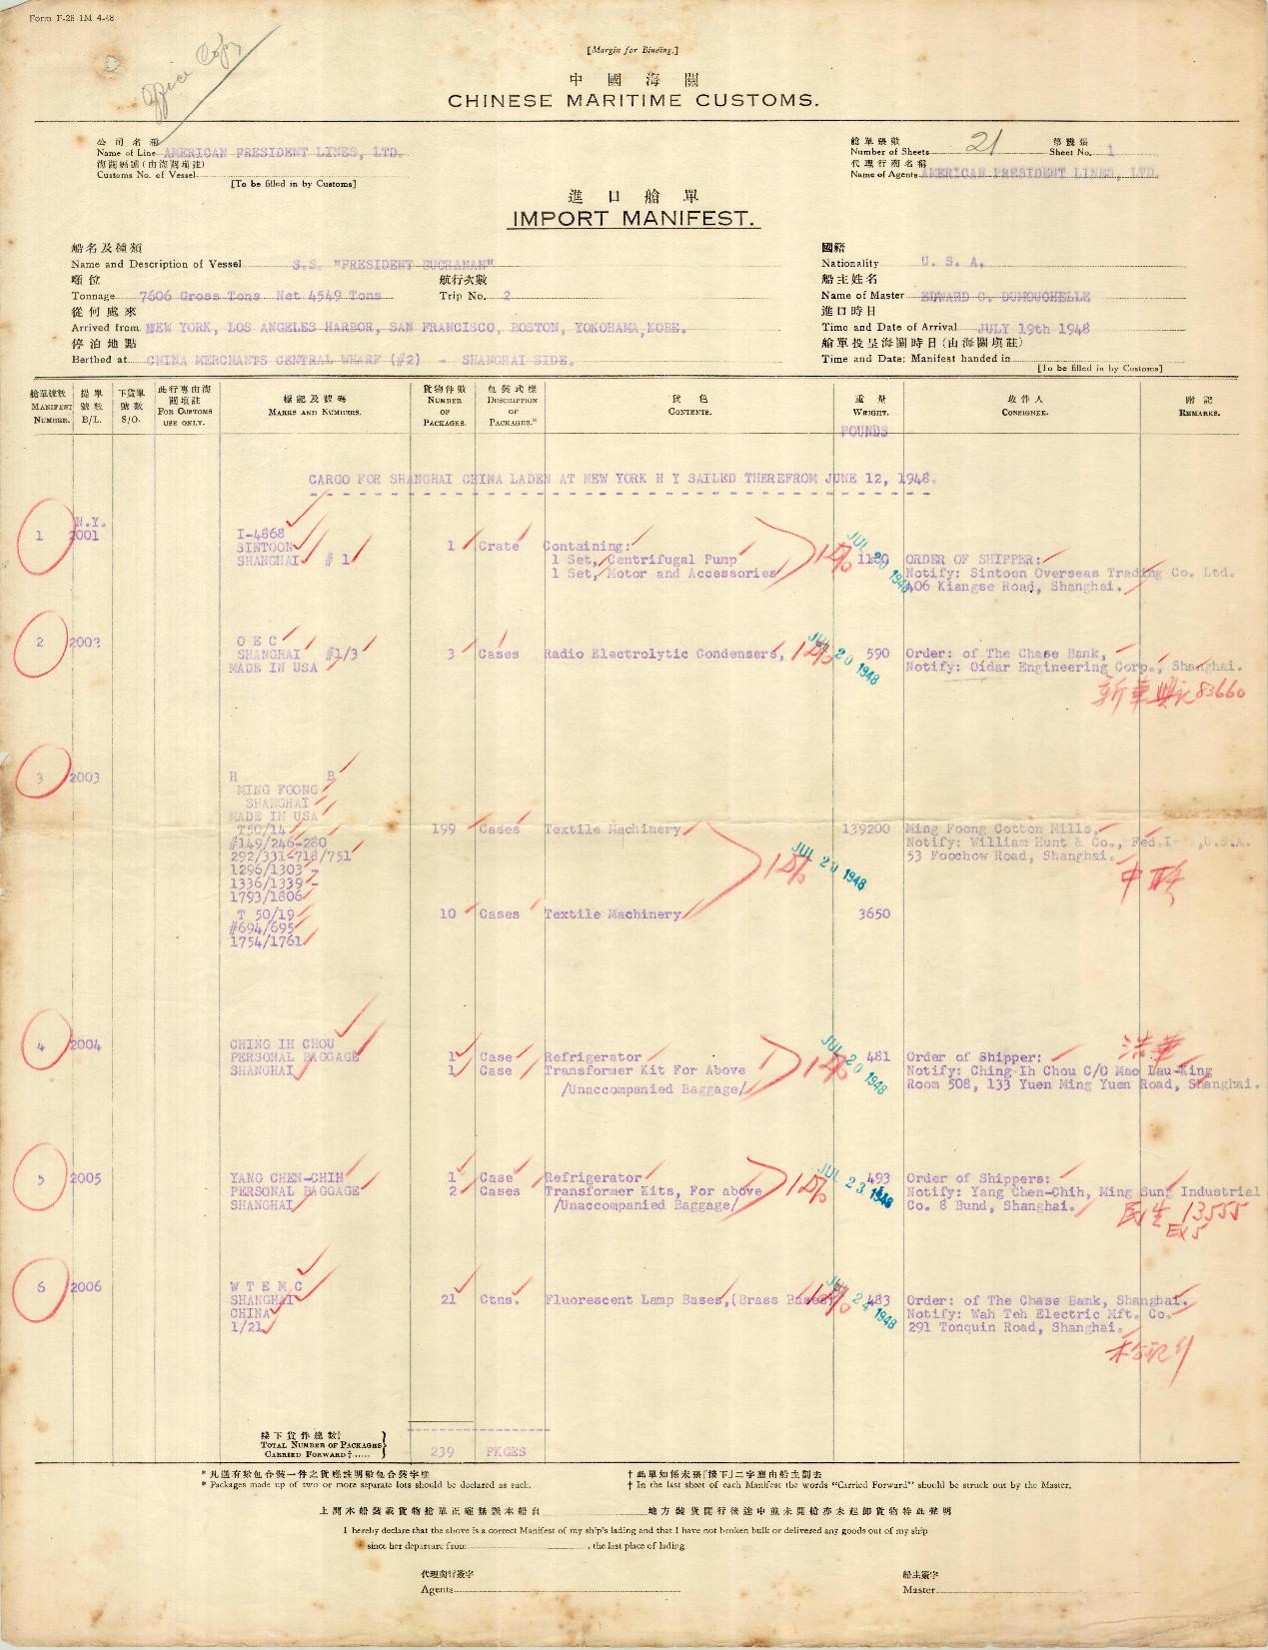 Form F-28 1M 4-48
Office Copy
[Margin for Binding.]
中國海關
CHINESE MARITIME CUSTOMS.
公司名稱
Name of Line AMERICAN PRESIDENT LINES, LTD.
Customs No. of Vessel
[To be filled in by Customs]
艙單張數 21
Number of Sheets
第幾張
Sheet No. 1
代理行商名稱
Name of Agents AMERICAN PRESIDENT LINES, LTD.
進口艙單
IMPORT MANIFEST.
船名及種類
Name and Description of Vessel S.S. "PRESIDENT BUCHANAN"
噸位
Tonnage 7606 Gross Tons Net 4549 Tons
航行次數
Trip No. 2
從何處來
Arrived from NEW YORK, LOS ANGELES HARBOR, SAN FRANCISCO, BOSTON, YOKOHAMA, KOBE.
停泊地點
Berthed at CHINA MERCHANTS CENTRAL WHARF (#2) - SHANGHAI SIDE.
國籍
Nationality U. S. A.
船主姓名
Name of Master EDWARD C. DUMOUCHELLE
進口時日
Time and Date of Arrival JULY 19th 1948
艙單投呈海關時日(由海關填註)
Time and Date: Manifest handed in
[To be filled in by Customs]
艙單號數 MANIFEST NUMBER.
提單號數 B/L.
下貨單號數 S/O.
此行專由海關填註 FOR CUSTOMS USE ONLY.
標記及號碼 MARKS AND NUMBERS.
貨物件數 NUMBER OF PACKAGES.
包裝式樣 DESCRIPTION OF PACKAGES.*
貨色 CONTENTS.
重量 WEIGHT.
收件人 CONSIGNEE.
附記 REMARKS.
POUNDS
CARGO FOR SHANGHAI CHINA LADEN AT NEW YORK N Y SAILED THEREFROM JUNE 12, 1948.
N.Y.
1 2001 I-4868
SINTOON 1 Crate Containing:
SHANGHAI # 1 1 Set, Centrifugal Pump ORDER OF SHIPPER:
1 Set, Motor and Accessories Notify: Sintoon Overseas Trading Co. Ltd.
406 Kiangse Road, Shanghai.
JUL 20 1948
2 2003 O E C
SHANGHAI #1/3 3 Cases Radio Electrolytic Condensers, 590 Order: of The Chase Bank,
MADE IN USA Notify: Oidar Engineering Corp., Shanghai.
JUL 20 1948
新華興記 83660
3 2003 H B
MING FOONG
SHANGHAI
MADE IN USA
T50/14 199 Cases Textile Machinery 139200 Ming Foong Cotton Mills,
#149/246-280 Notify: William Hunt & Co., Fed.I ,U.S.A.
292/331-718/751 53 Foochow Road, Shanghai.
1296/1303
1336/1339
1793/1806
JUL 20 1948
T 50/19 10 Cases Textile Machinery 3650
#694/695
1754/1761
4 2004 CHING IH CHOU
PERSONAL BAGGAGE 1 Case Refrigerator 481 Order of Shipper:
SHANGHAI 1 Case Transformer Kit For Above Notify: Ching Ih Chou C/O Mao Lau-King
/Unaccompanied Baggage/ Room 508, 133 Yuen Ming Yuen Road, Shanghai.
JUL 20 1948
5 2005 YANG CHEN-CHIH 1 Case Refrigerator 493 Order of Shippers:
PERSONAL BAGGAGE 2 Cases Transformer Kits, For above Notify: Yang Chen-Chih, Ming Sung Industrial
SHANGHAI /Unaccompanied Baggage/ Co. 8 Bund, Shanghai.
JUL 23 1948
民生 13555
EX 5
6 2006 W T E M C
SHANGHAI 21 Ctns. Fluorescent Lamp Bases,(Brass Bases) 483 Order: of The Chase Bank, Shanghai.
CHINA Notify: Wah Teh Electric Mft. Co.
1/21 291 Tonquin Road, Shanghai.
JUL 24 1948
接下貨件總數†
TOTAL NUMBER OF PACKAGES
CARRIED FORWARD†...... 239 PKGES
* Packages made up of two or more separate lots should be declared as such.
† In the last sheet of each Manifest the words "Carried Forward" should be struck out by the Master.
I hereby declare that the above is a correct Manifest of my ship's lading and that I have not broken bulk or delivered any goods out of my ship
since her departure from , the last place of lading
代理商行簽字
Agents
船主簽字
Master